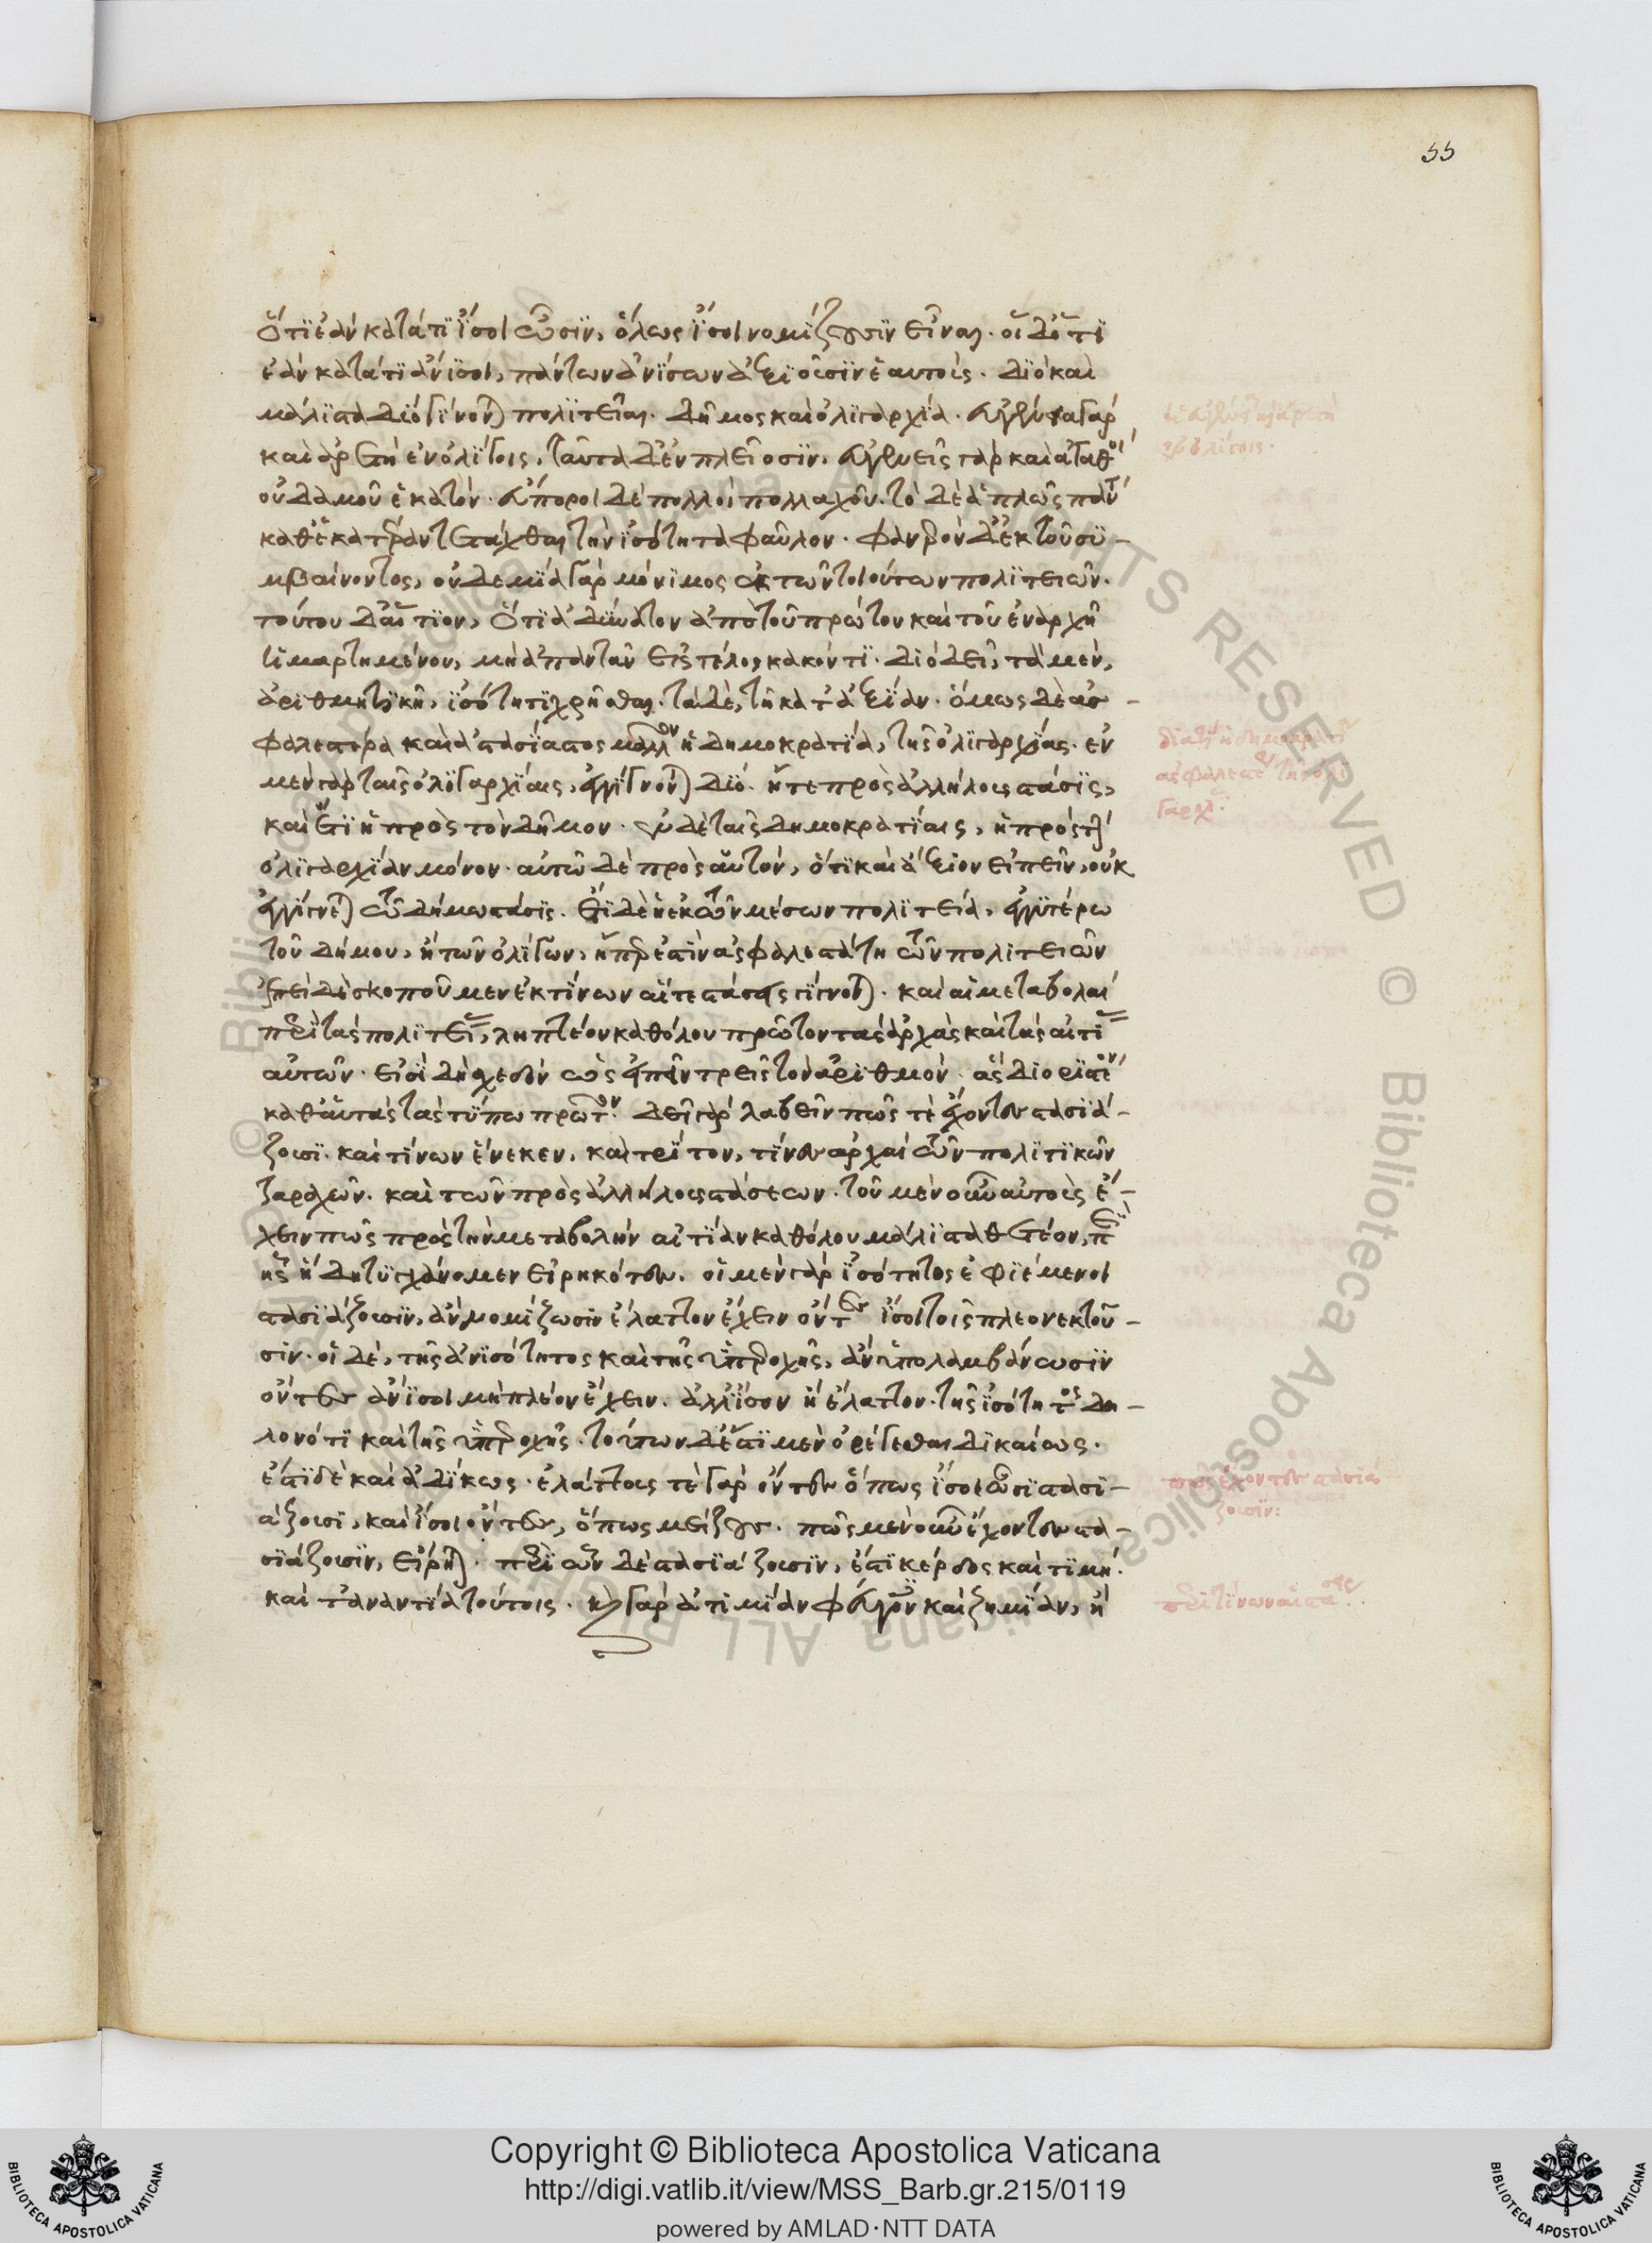 55
ὅτι ἐὰν κατά τι ἴσοι ὦσιν, ὅλως ἴσοι νομίζουσιν εἶναι. οἱ δ' ὅτι
ἐὰν κατά τι ἄνισοι, πάντων ἀνίσων ἀξιοῦσιν ἑαυτοὺς. διὸ καὶ
μάλιστα δύο γίνονται πολιτεῖαι. δῆμος καὶ ὀλιγαρχία. εὐγένεια γὰρ
καὶ ἀρετὴ ἐν ὀλίγοις, ταῦτα δ' ἐν πλείοσιν. εὐγενεῖς γὰρ καὶ ἀγαθοὶ
οὐδαμοῦ ἑκατόν. εὔποροι δὲ πολλοὶ πολλαχοῦ. τὸ δὲ ἁπλῶς πάντη
καθ' ἑκατέραν τετάχθαι τὴν ἰσότητα φαῦλον. φανερὸν δ' ἐκ τοῦ συ-
μβαίνοντος, οὐδεμία γὰρ μόνιμος ἐκ τῶν τοιούτων πολιτειῶν.
τούτου δ' αἴτιον, ὅτι ἀδύνατον ἀπὸ τοῦ πρώτου καὶ τοῦ ἐν ἀρχῇ
ἡμαρτημένου, μὴ ἀπαντᾶν εἰς τέλος κακόν τι. διὸ δεῖ, τὰ μὲν,
ἀριθμητικῇ, ἰσότητι χρῆσθαι. τὰ δὲ, τῇ κατ' ἀξίαν. ὅμως δὲ ἀσ-
φαλεστέρα καὶ ἀστασίαστος μᾶλλον ἡ δημοκρατία, τῆς ὀλιγαρχίας. ἐν
μὲν γὰρ ταῖς ὀλιγαρχίαις, ἐγγίγνονται δύο. ἥ τε πρὸς ἀλλήλους στάσις,
καὶ ἔτι ἡ πρὸς τὸν δῆμον. ἐν δὲ ταῖς δημοκρατίαις, ἡ πρὸς τὴν
ὀλιγαρχίαν μόνον. αὐτῷ δὲ πρὸς αὑτόν, ὅτι καὶ ἄξιον εἰπεῖν, οὐκ
ἐγγίγνεται τῷ δήμῳ στάσις. ἔτι δὲ ἡ ἐκ τῶν μέσων πολιτεία, ἐγγυτέρω
τοῦ δήμου, ἢ τῶν ὀλίγων, ἥπερ ἐστὶν ἀσφαλεστάτη τῶν πολιτειῶν
ἐπεὶ δὲ σκοποῦμεν ἐκ τίνων αἵ τε στάσεις γίγνονται. καὶ αἱ μεταβολαὶ
περὶ τὰς πολιτείας, ληπτέον καθόλου πρῶτον τὰς ἀρχὰς καὶ τὰς αἰτίας
αὐτῶν. εἰσὶ δὴ σχεδὸν ὡς εἰπεῖν τρεῖς τὸν ἀριθμὸν. ἃς διοριστέον
καθ' αὑτὰς τῷ τύπῳ πρῶτον. δεῖ γὰρ λαβεῖν πῶς τὲ ἔχοντες στασιά-
ζουσι. καὶ τίνων ἕνεκεν. καὶ τρίτον, τίνες ἀρχαὶ τῶν πολιτικῶν
ταραχῶν. καὶ τῶν πρὸς ἀλλήλους στάσεων. τοῦ μὲν οὖν αὐτοὺς ἔ-
χειν πῶς πρὸς τὴν μεταβολὴν αἰτίαν καθόλου μάλιστα θετέον, περὶ
ἧς ἤδη τυγχάνομεν εἰρηκότες. οἱ μὲν γὰρ ἰσότητος ἐφιέμενοι
στασιάζουσιν, ἂν νομίζωσιν ἔλαττον ἔχειν ὄντες ἴσοι τοῖς πλεονεκτοῦ-
σιν. οἱ δὲ, τῆς ἀνισότητος καὶ τῆς ὑπεροχῆς, ἂν ὑπολαμβάνωσιν
ὄντες ἄνισοι μὴ πλέον ἔχειν. ἀλλ' ἴσον ἢ ἔλαττον. τῆς ἰσότητος δη-
λονότι καὶ τῆς ὑπεροχῆς. τούτων δ' ἔστι μὲν ὀρέγεσθαι δικαίως.
ἔστι δὲ καὶ ἀδίκως. ἐλάττους τὲ γὰρ ὄντες ὅπως ἴσοι ὦσι στασι-
άζουσι, καὶ ἴσοι ὄντες, ὅπως μείζους. πῶς μὲν οὖν ἔχοντες στα-
σιάζουσιν, εἴρηται. περὶ ὧν δὲ στασιάζουσιν, ἐστὶ κέρδος καὶ τιμή.
καὶ τἀναντία τούτοις. καὶ γὰρ ἀτιμίαν φεύγοντες καὶ ζημίαν, ἢ
πῶς ἔχοντες στασιά
ζουσιν:
Copyright © Biblioteca Apostolica Vaticana
http://digi.vatlib.it/view/MSS_Barb.gr.215/0119
powered by AMLAD·NTT DATA
BIBLIOTECA APOSTOLICA VATICANA
BIBLIOTECA APOSTOLICA VATICANA